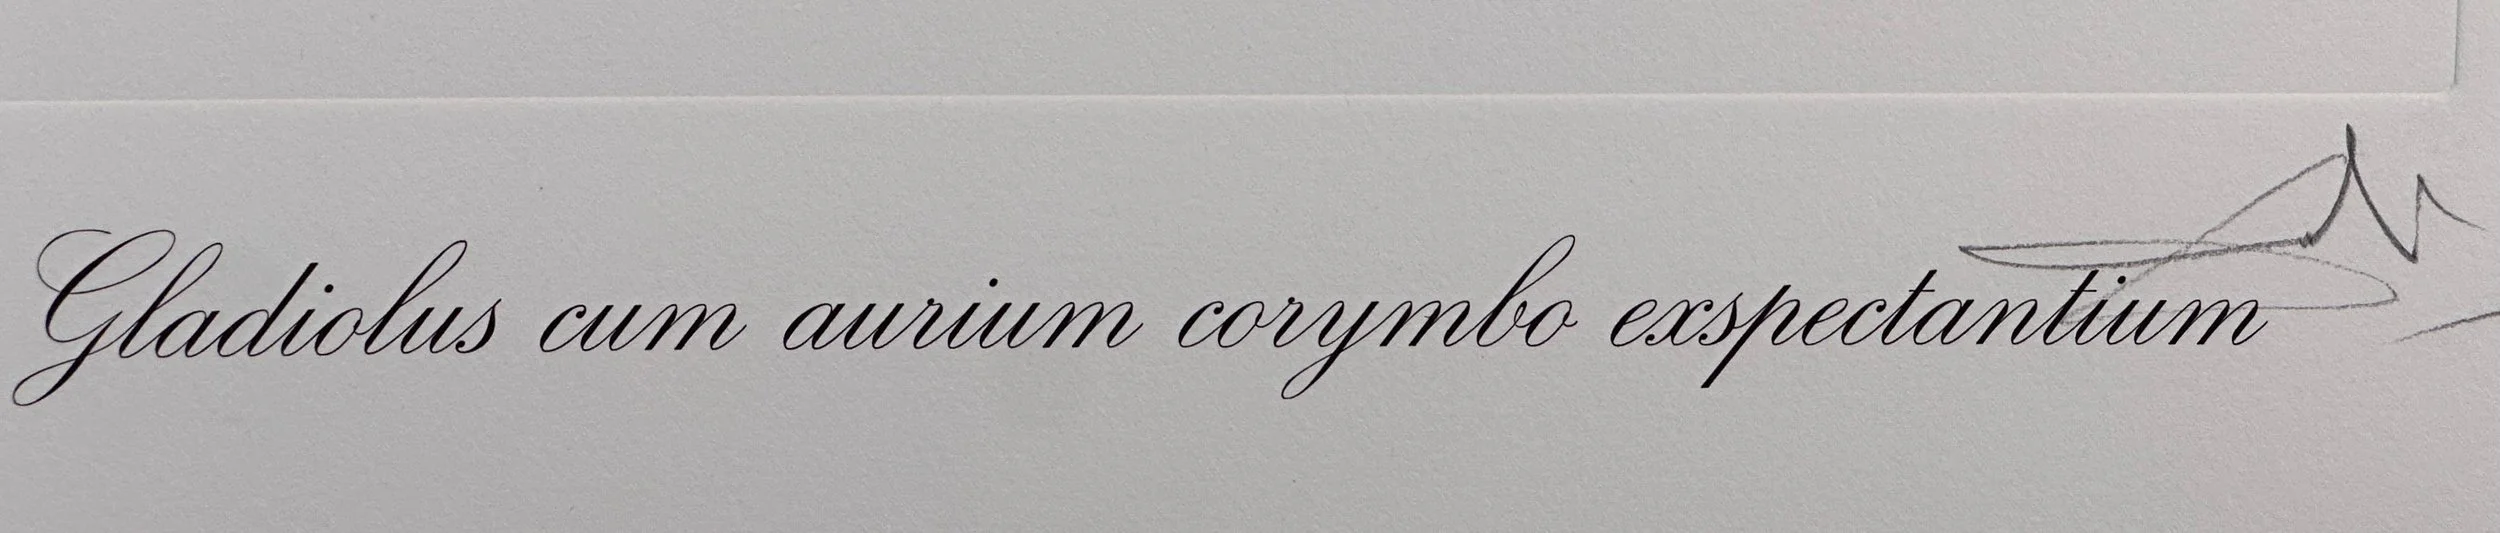 Gladiolus cum aurium corymbo exspectantium